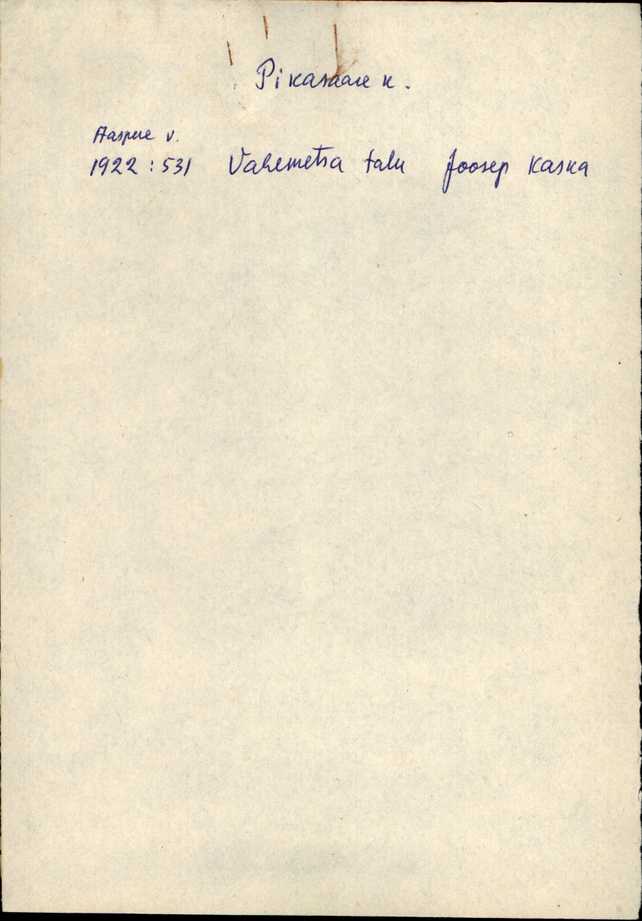 Pikasaare k.
Aaspere v.
1922:531 Vahemetsa talu Joosep Kaska